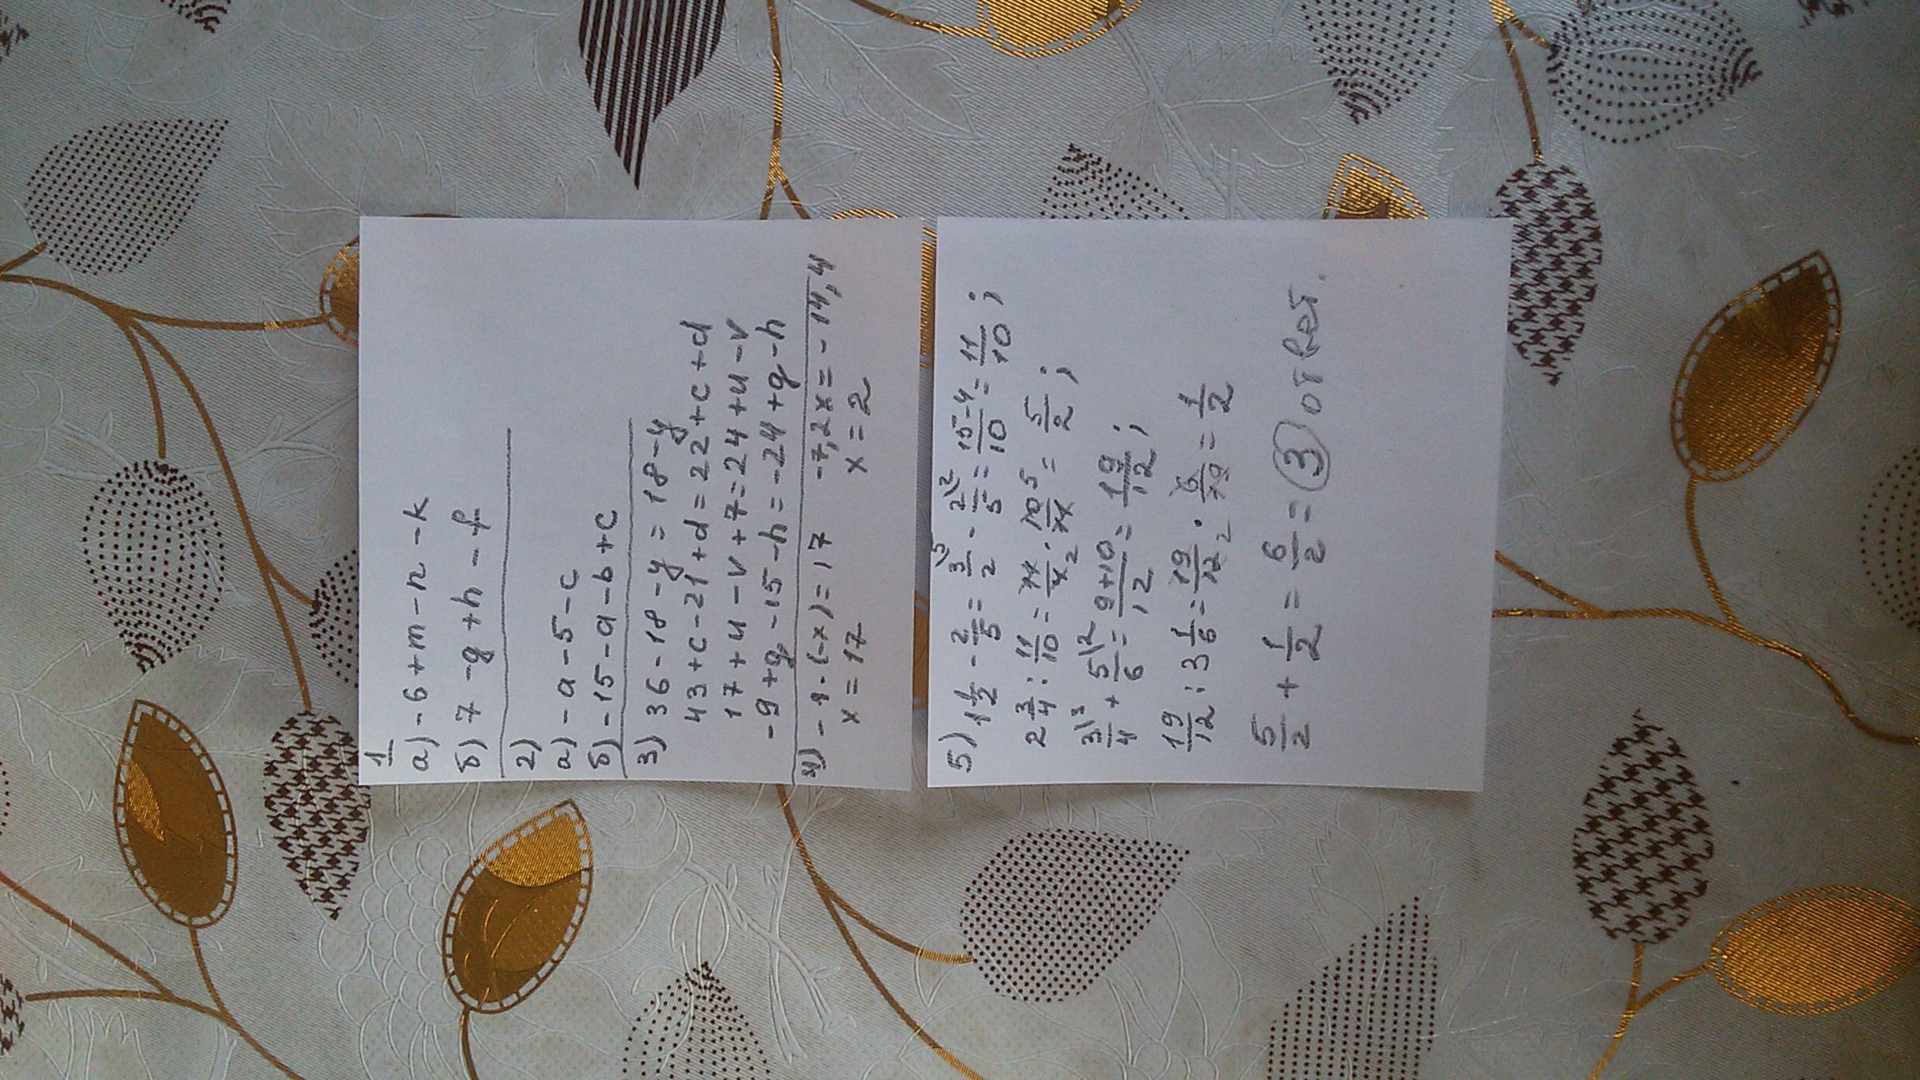 1
а) -6+m-n-k
б) 7-g+h-f
2)
а) -a-5-c
б) -15-a-b+c
3) 36-18-y=18-y
43+c-21+d=22+c+d
17+u-v+7=24+u-v
-9+g-15-h=-24+g-h
4) -1·(-x)=17 -7,2x=-14,4
x=17 x=2
5) 1 1/2 - 2/5 = 3/2 \5 - 2/5 \2 = 15-4/10 = 11/10;
2 3/4 : 11/10 = 11/4 2 · 10 5/11 = 5/2;
3/4 \3 + 5/6 \2 = 9+10/12 = 19/12;
19/12 : 3 1/6 = 19/12 2 · 6/19 = 1/2
5/2 + 1/2 = 6/2 = 3 ответ.